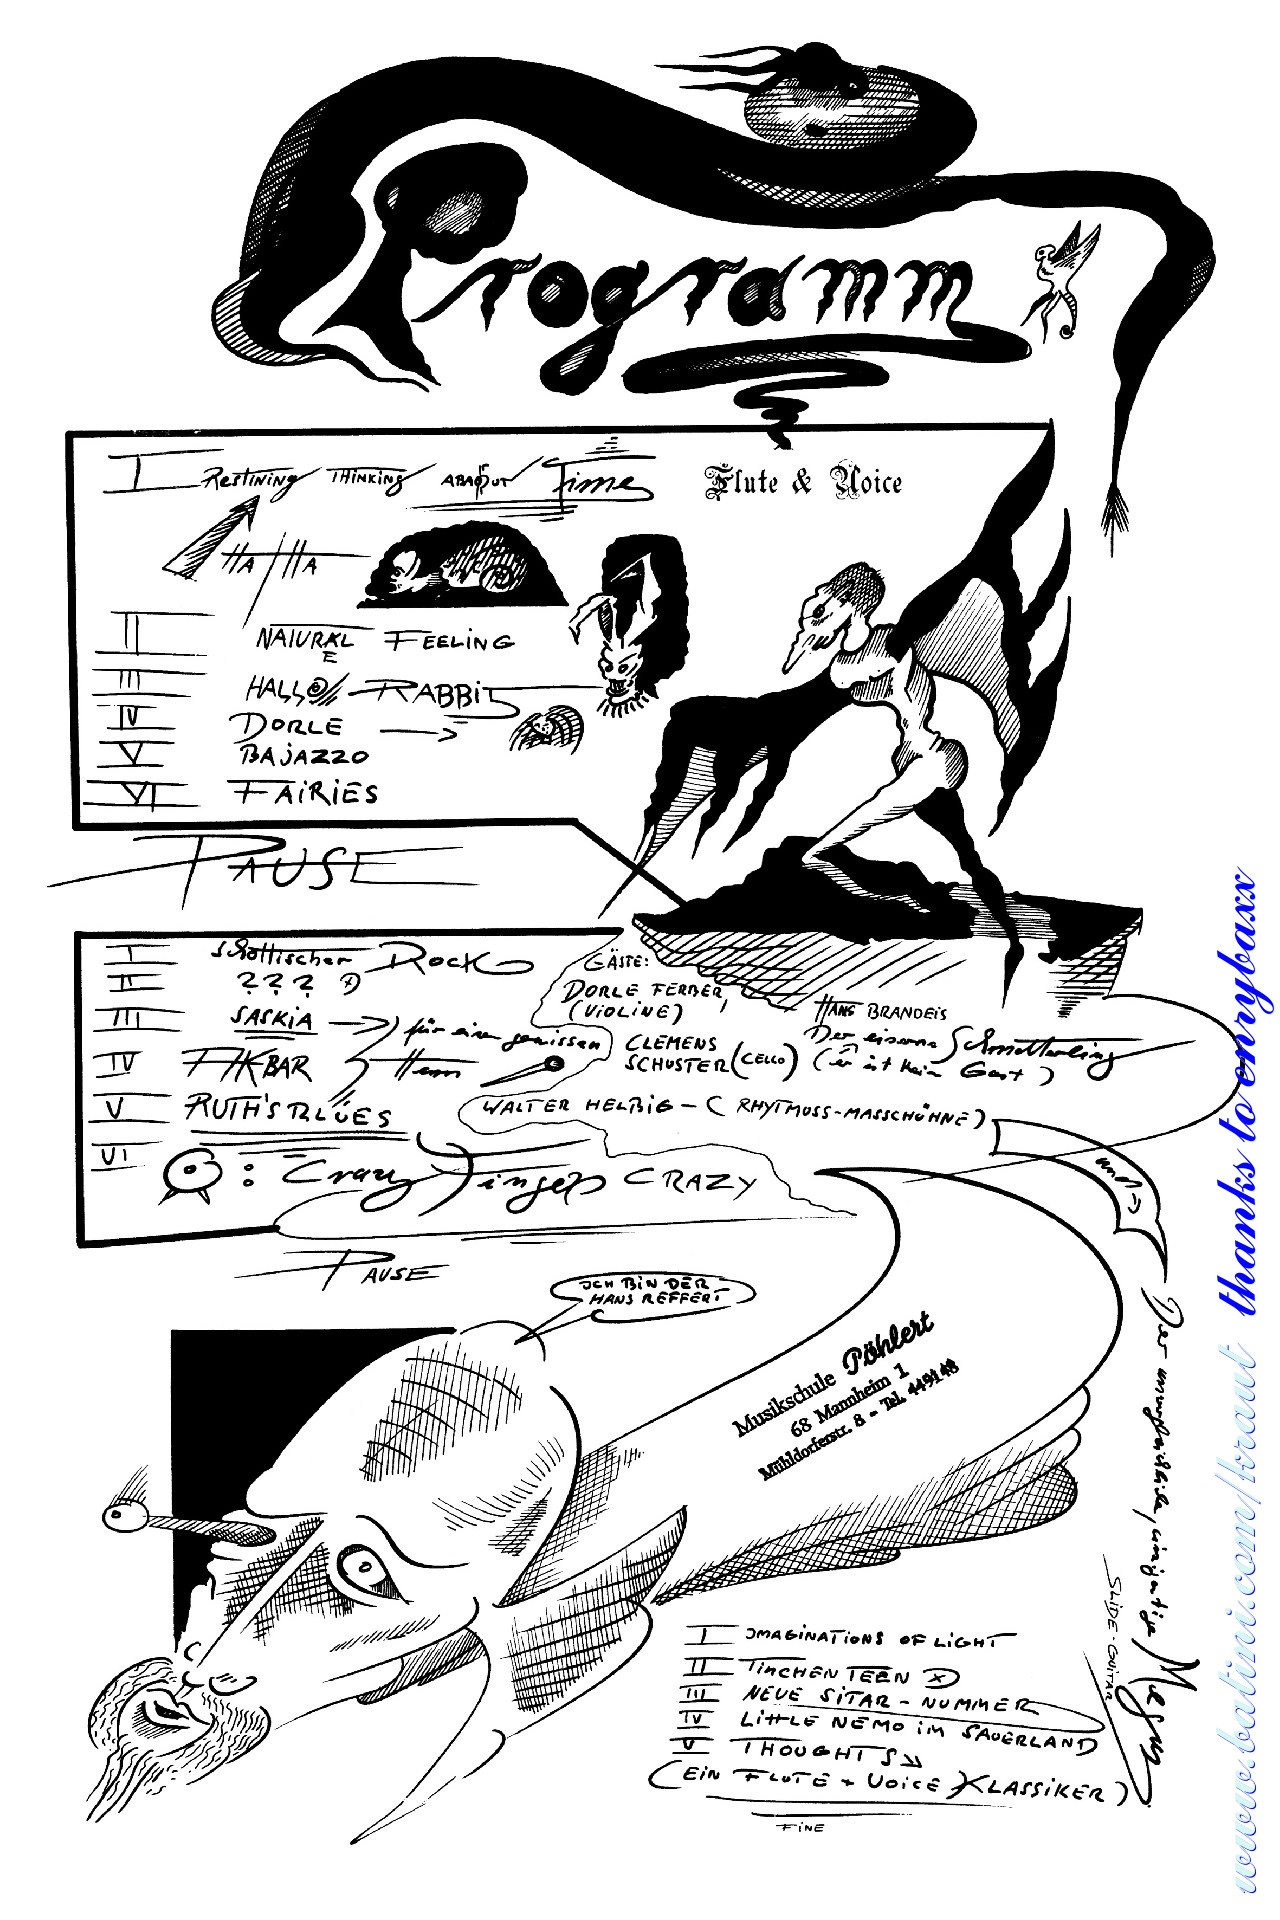 Programm
I Restining THINKING ABAOUT Time
Flute & Voice
HA/HA
II NATURAL FEELING
E
III HALLO RABBIT
IV DORLE
V BAJAZZO
VI FAIRIES
PAUSE
I Schottischer Rock
II ? ? ?
III SASKIA für einen gewissen
IV AKBAR Herrn
V RUTH'S BLUES
VI : Crazy Fingers CRAZY
GÄSTE:
DORLE FERBER,
(VIOLINE)
CLEMENS
SCHUSTER (CELLO)
HANS BRANDEIS
Der eiserne Schmetterling
(er ist kein Gast)
WALTER HELBIG - (RHYTMUSS-MASSCHÜHNE)
und
PAUSE
ICH BIN DER
HANS REFFERT
Musikschule Pöhlert
68 Mannheim 1
Mühldorferstr. 8 - Tel. 449148
Der unvergleichliche, einzigartige
SLIDE-GUITAR
I IMAGINATIONS OF LIGHT
II TINCHEN TEEN
III NEUE SITAR-NUMMER
IV LITTLE NEMO IM SAUERLAND
V THOUGHTS
(EIN FLUTE + VOICE KLASSIKER)
FINE
www.batini.com/kraut thanks to enrybaxx